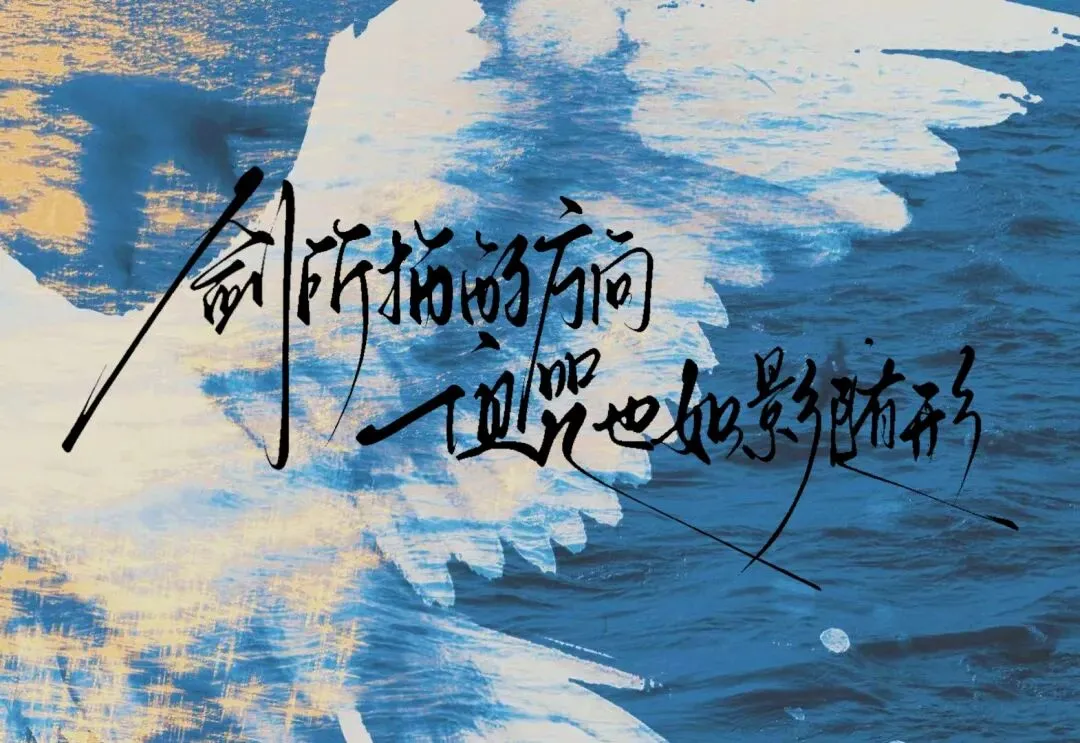 剑所指的方向
诅咒也如影随形